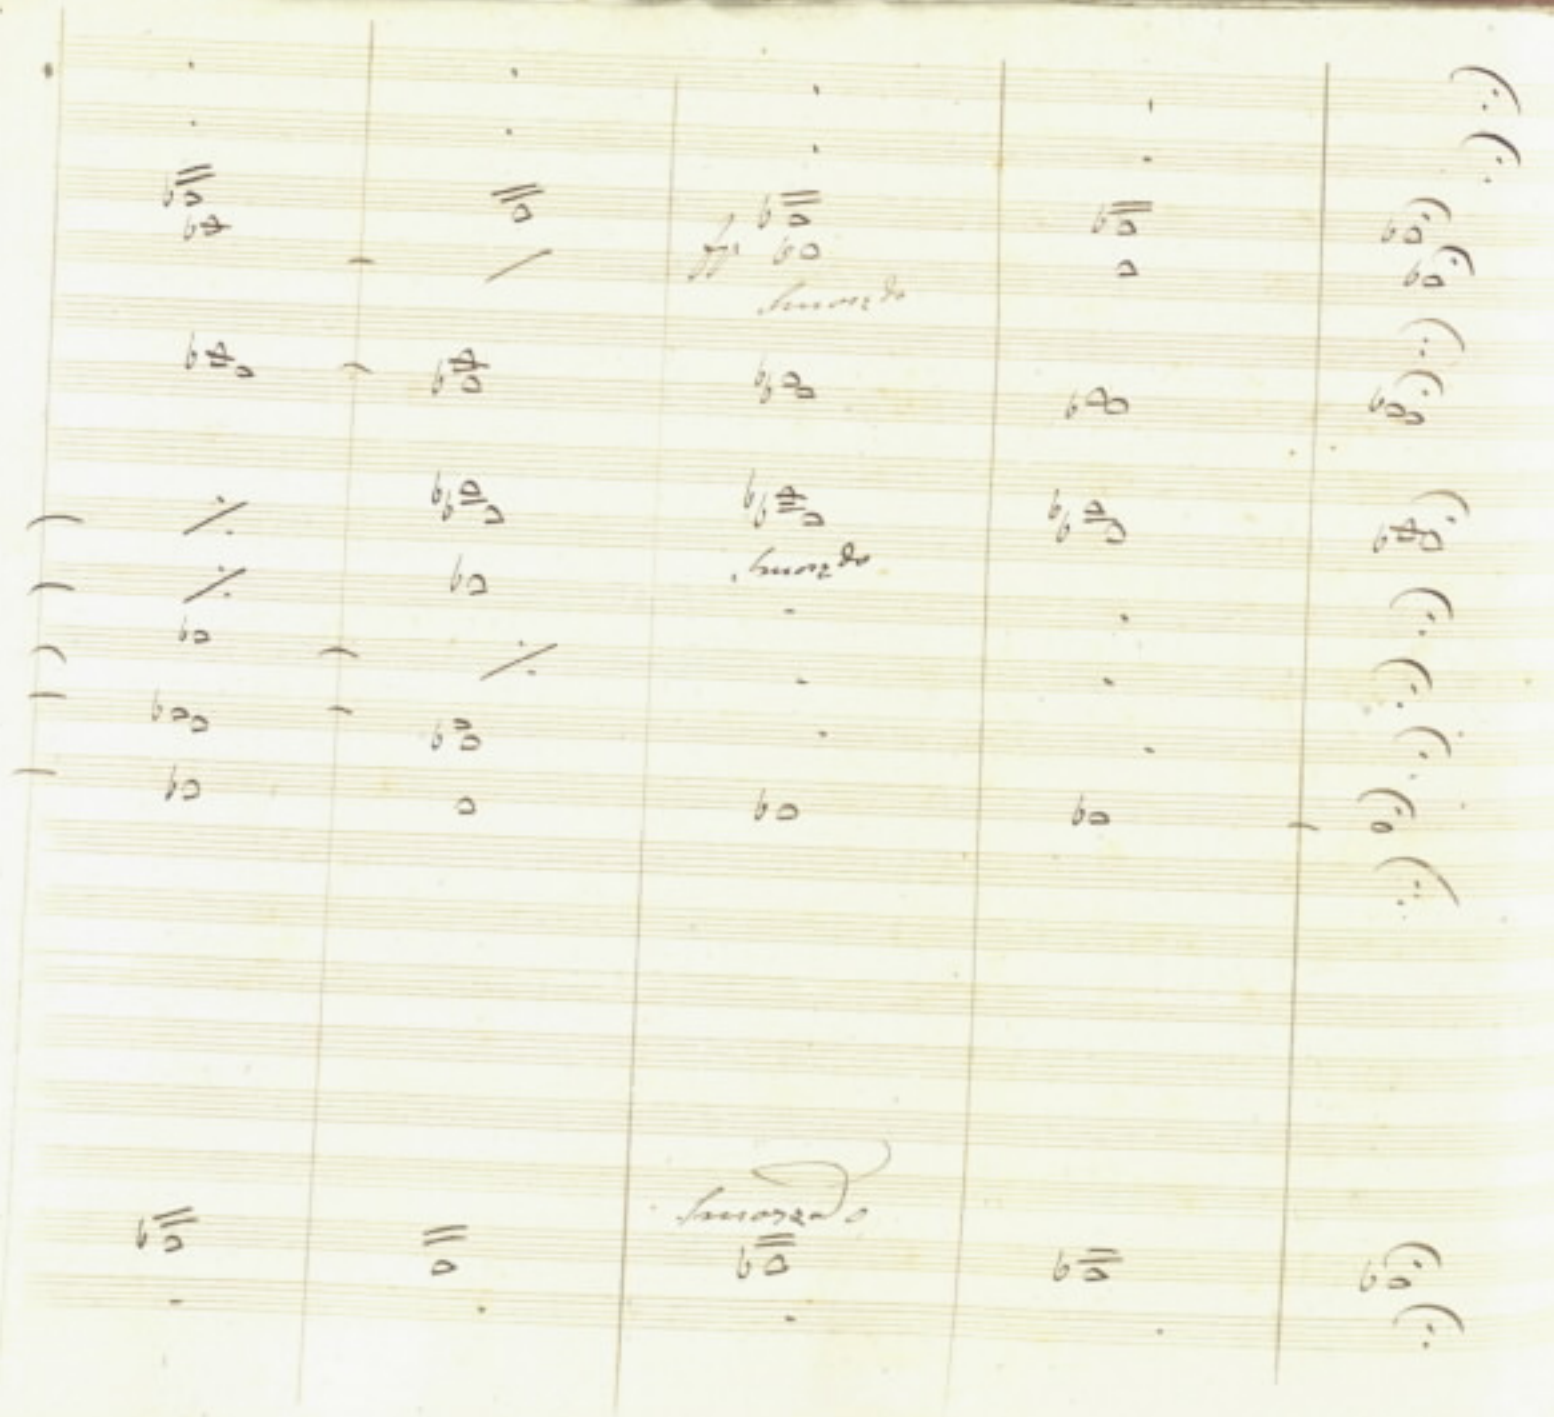 Smorzdo
Smorzdo
Smorzado